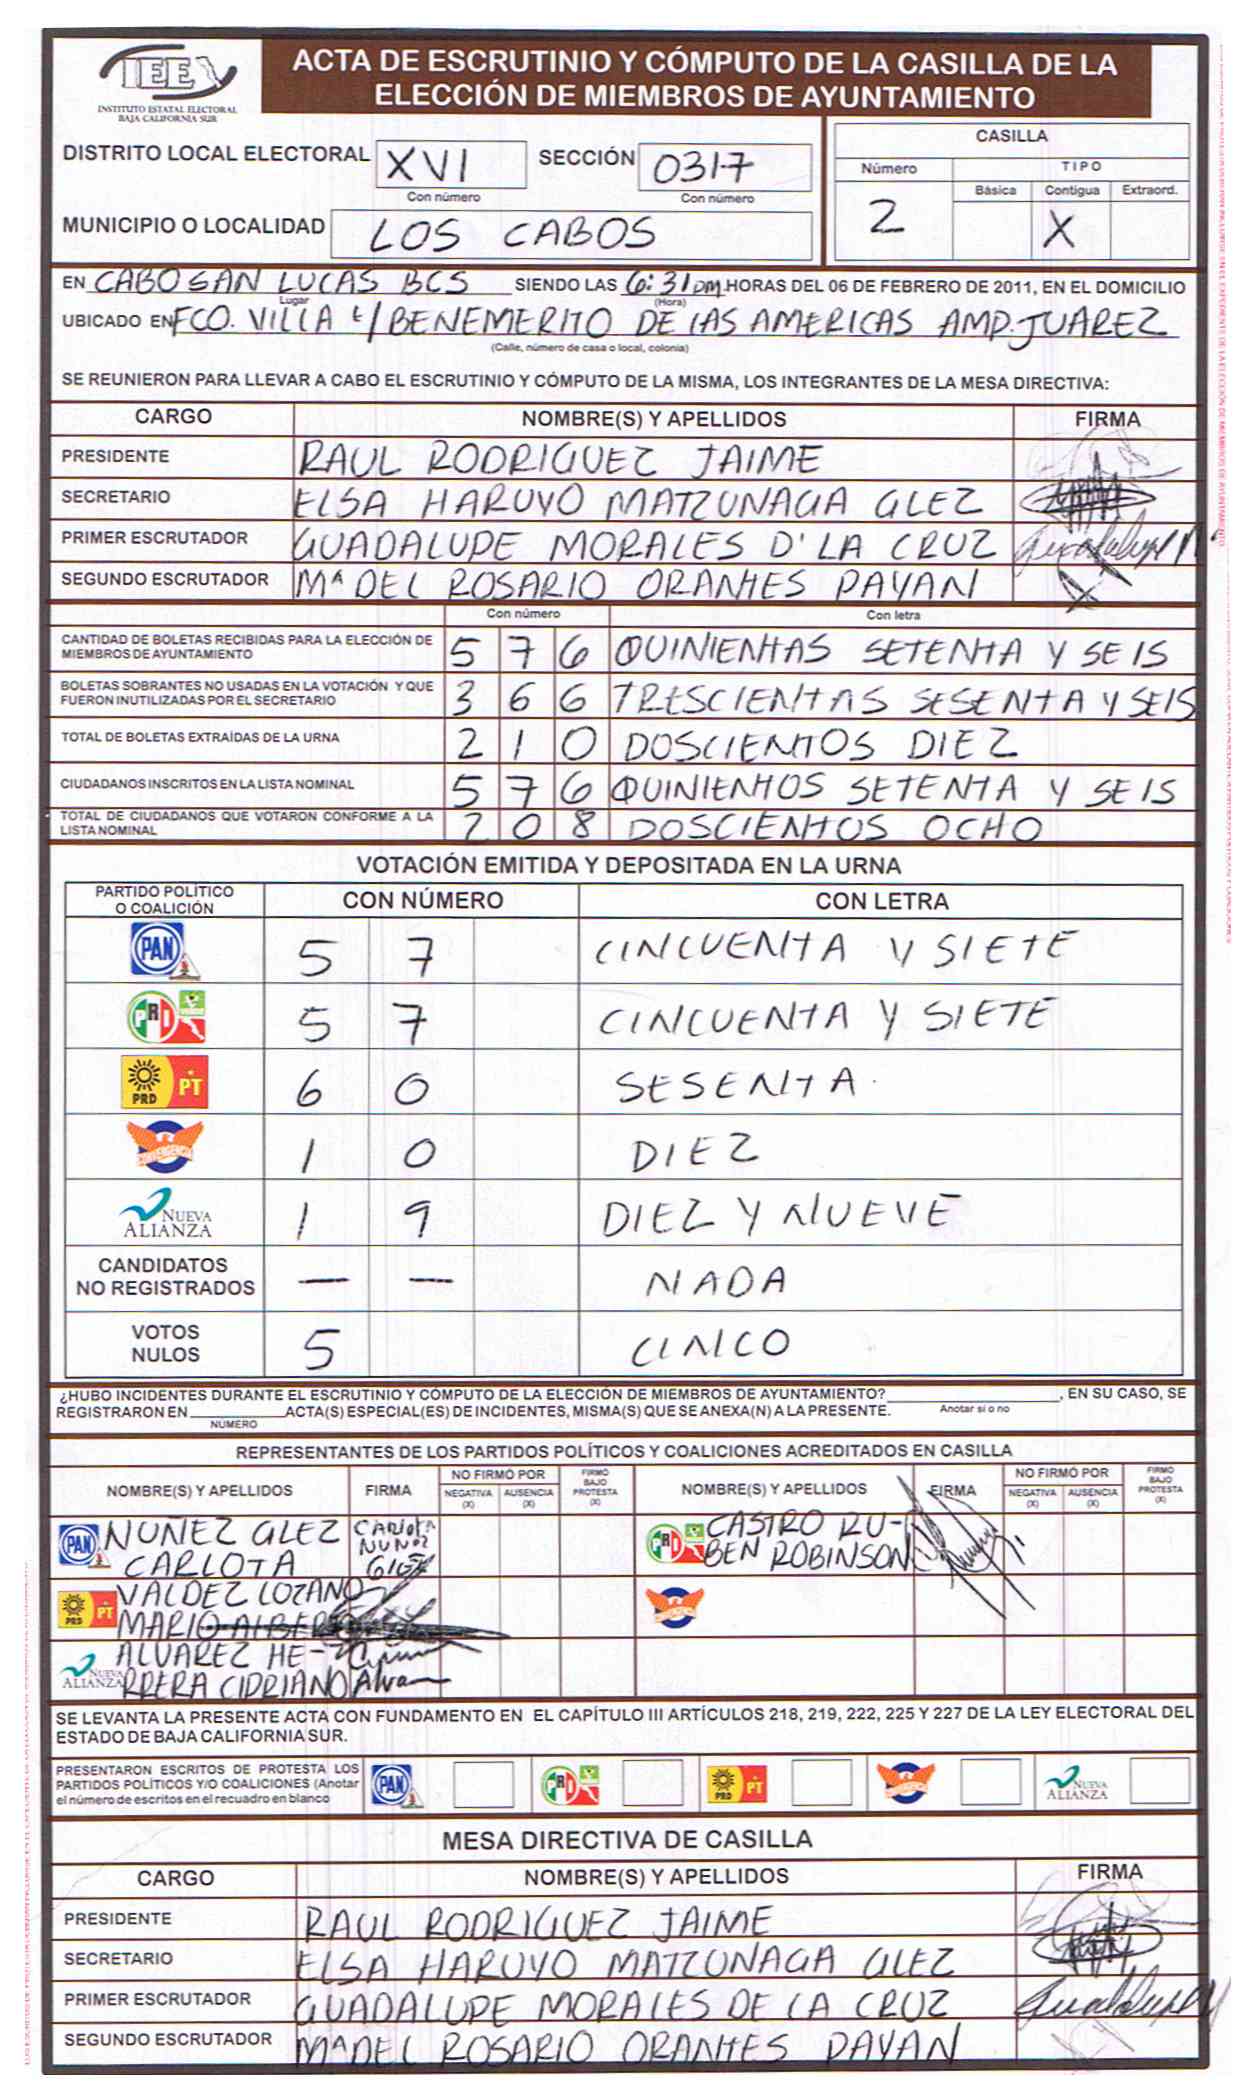 IEE
INSTITUTO ESTATAL ELECTORAL
BAJA CALIFORNIA SUR
ACTA DE ESCRUTINIO Y CÓMPUTO DE LA CASILLA DE LA
ELECCIÓN DE MIEMBROS DE AYUNTAMIENTO
DISTRITO LOCAL ELECTORAL XVI SECCIÓN 0317
Con número Con número
MUNICIPIO O LOCALIDAD LOS CABOS
CASILLA
Número TIPO
Básica Contigua Extraord.
2 X
EN CABO SAN LUCAS BCS SIENDO LAS 6:31 pm HORAS DEL 06 DE FEBRERO DE 2011, EN EL DOMICILIO
Lugar (Hora)
UBICADO EN FCO. VILLA E/ BENEMERITO DE LAS AMERICAS AMP. JUAREZ
(Calle, número de casa o local, colonia)
SE REUNIERON PARA LLEVAR A CABO EL ESCRUTINIO Y CÓMPUTO DE LA MISMA, LOS INTEGRANTES DE LA MESA DIRECTIVA:
CARGO NOMBRE(S) Y APELLIDOS FIRMA
PRESIDENTE RAUL RODRIGUEZ JAIME
SECRETARIO ELSA HARUYO MATZUNAGA GLEZ
PRIMER ESCRUTADOR GUADALUPE MORALES D' LA CRUZ Guadalupe M
SEGUNDO ESCRUTADOR Mª DEL ROSARIO ORANTES PAYAN
Con número Con letra
CANTIDAD DE BOLETAS RECIBIDAS PARA LA ELECCIÓN DE
MIEMBROS DE AYUNTAMIENTO 5 7 6 QUINIENTAS SETENTA Y SEIS
BOLETAS SOBRANTES NO USADAS EN LA VOTACIÓN Y QUE
FUERON INUTILIZADAS POR EL SECRETARIO 3 6 6 TRESCIENTAS SESENTA Y SEIS
TOTAL DE BOLETAS EXTRAÍDAS DE LA URNA 2 1 0 DOSCIENTOS DIEZ
CIUDADANOS INSCRITOS EN LA LISTA NOMINAL 5 7 6 QUINIENTOS SETENTA Y SEIS
TOTAL DE CIUDADANOS QUE VOTARON CONFORME A LA
LISTA NOMINAL 2 0 8 DOSCIENTOS OCHO
VOTACIÓN EMITIDA Y DEPOSITADA EN LA URNA
PARTIDO POLÍTICO
O COALICIÓN CON NÚMERO CON LETRA
PAN 5 7 CINCUENTA Y SIETE
PRI 5 7 CINCUENTA Y SIETE
PRD PT 6 0 SESENTA
CONVERGENCIA 1 0 DIEZ
NUEVA
ALIANZA 1 9 DIEZ Y NUEVE
CANDIDATOS
NO REGISTRADOS — — NADA
VOTOS
NULOS 5 CINCO
¿HUBO INCIDENTES DURANTE EL ESCRUTINIO Y CÓMPUTO DE LA ELECCIÓN DE MIEMBROS DE AYUNTAMIENTO? , EN SU CASO, SE
REGISTRARON EN ACTA(S) ESPECIAL(ES) DE INCIDENTES, MISMA(S) QUE SE ANEXA(N) A LA PRESENTE. Anotar si o no
NUMERO
REPRESENTANTES DE LOS PARTIDOS POLÍTICOS Y COALICIONES ACREDITADOS EN CASILLA
NOMBRE(S) Y APELLIDOS FIRMA NO FIRMÓ POR NEGATIVA (X) AUSENCIA (X) FIRMÓ BAJO PROTESTA (X) NOMBRE(S) Y APELLIDOS FIRMA NO FIRMÓ POR NEGATIVA (X) AUSENCIA (X) FIRMÓ BAJO PROTESTA (X)
PAN NUÑEZ GLEZ CARLOTA Carlota Nuñez Glez PRI CASTRO RU-
BEN ROBINSON
PRD PT VALDEZ LOZANO
MARIO ALBERTO
NUEVA ALIANZA ALVAREZ HE-
RRERA CIPRIANO Alvar
SE LEVANTA LA PRESENTE ACTA CON FUNDAMENTO EN EL CAPÍTULO III ARTÍCULOS 218, 219, 222, 225 Y 227 DE LA LEY ELECTORAL DEL
ESTADO DE BAJA CALIFORNIA SUR.
PRESENTARON ESCRITOS DE PROTESTA LOS
PARTIDOS POLÍTICOS Y/O COALICIONES (Anotar
el número de escritos en el recuadro en blanco
PAN PRI PRD PT CONVERGENCIA NUEVA ALIANZA
MESA DIRECTIVA DE CASILLA
CARGO NOMBRE(S) Y APELLIDOS FIRMA
PRESIDENTE RAUL RODRIGUEZ JAIME
SECRETARIO ELSA HARUYO MATZUNAGA GLEZ
PRIMER ESCRUTADOR GUADALUPE MORALES DE LA CRUZ Guadalupe M
SEGUNDO ESCRUTADOR Mª DEL ROSARIO ORANTES PAYAN